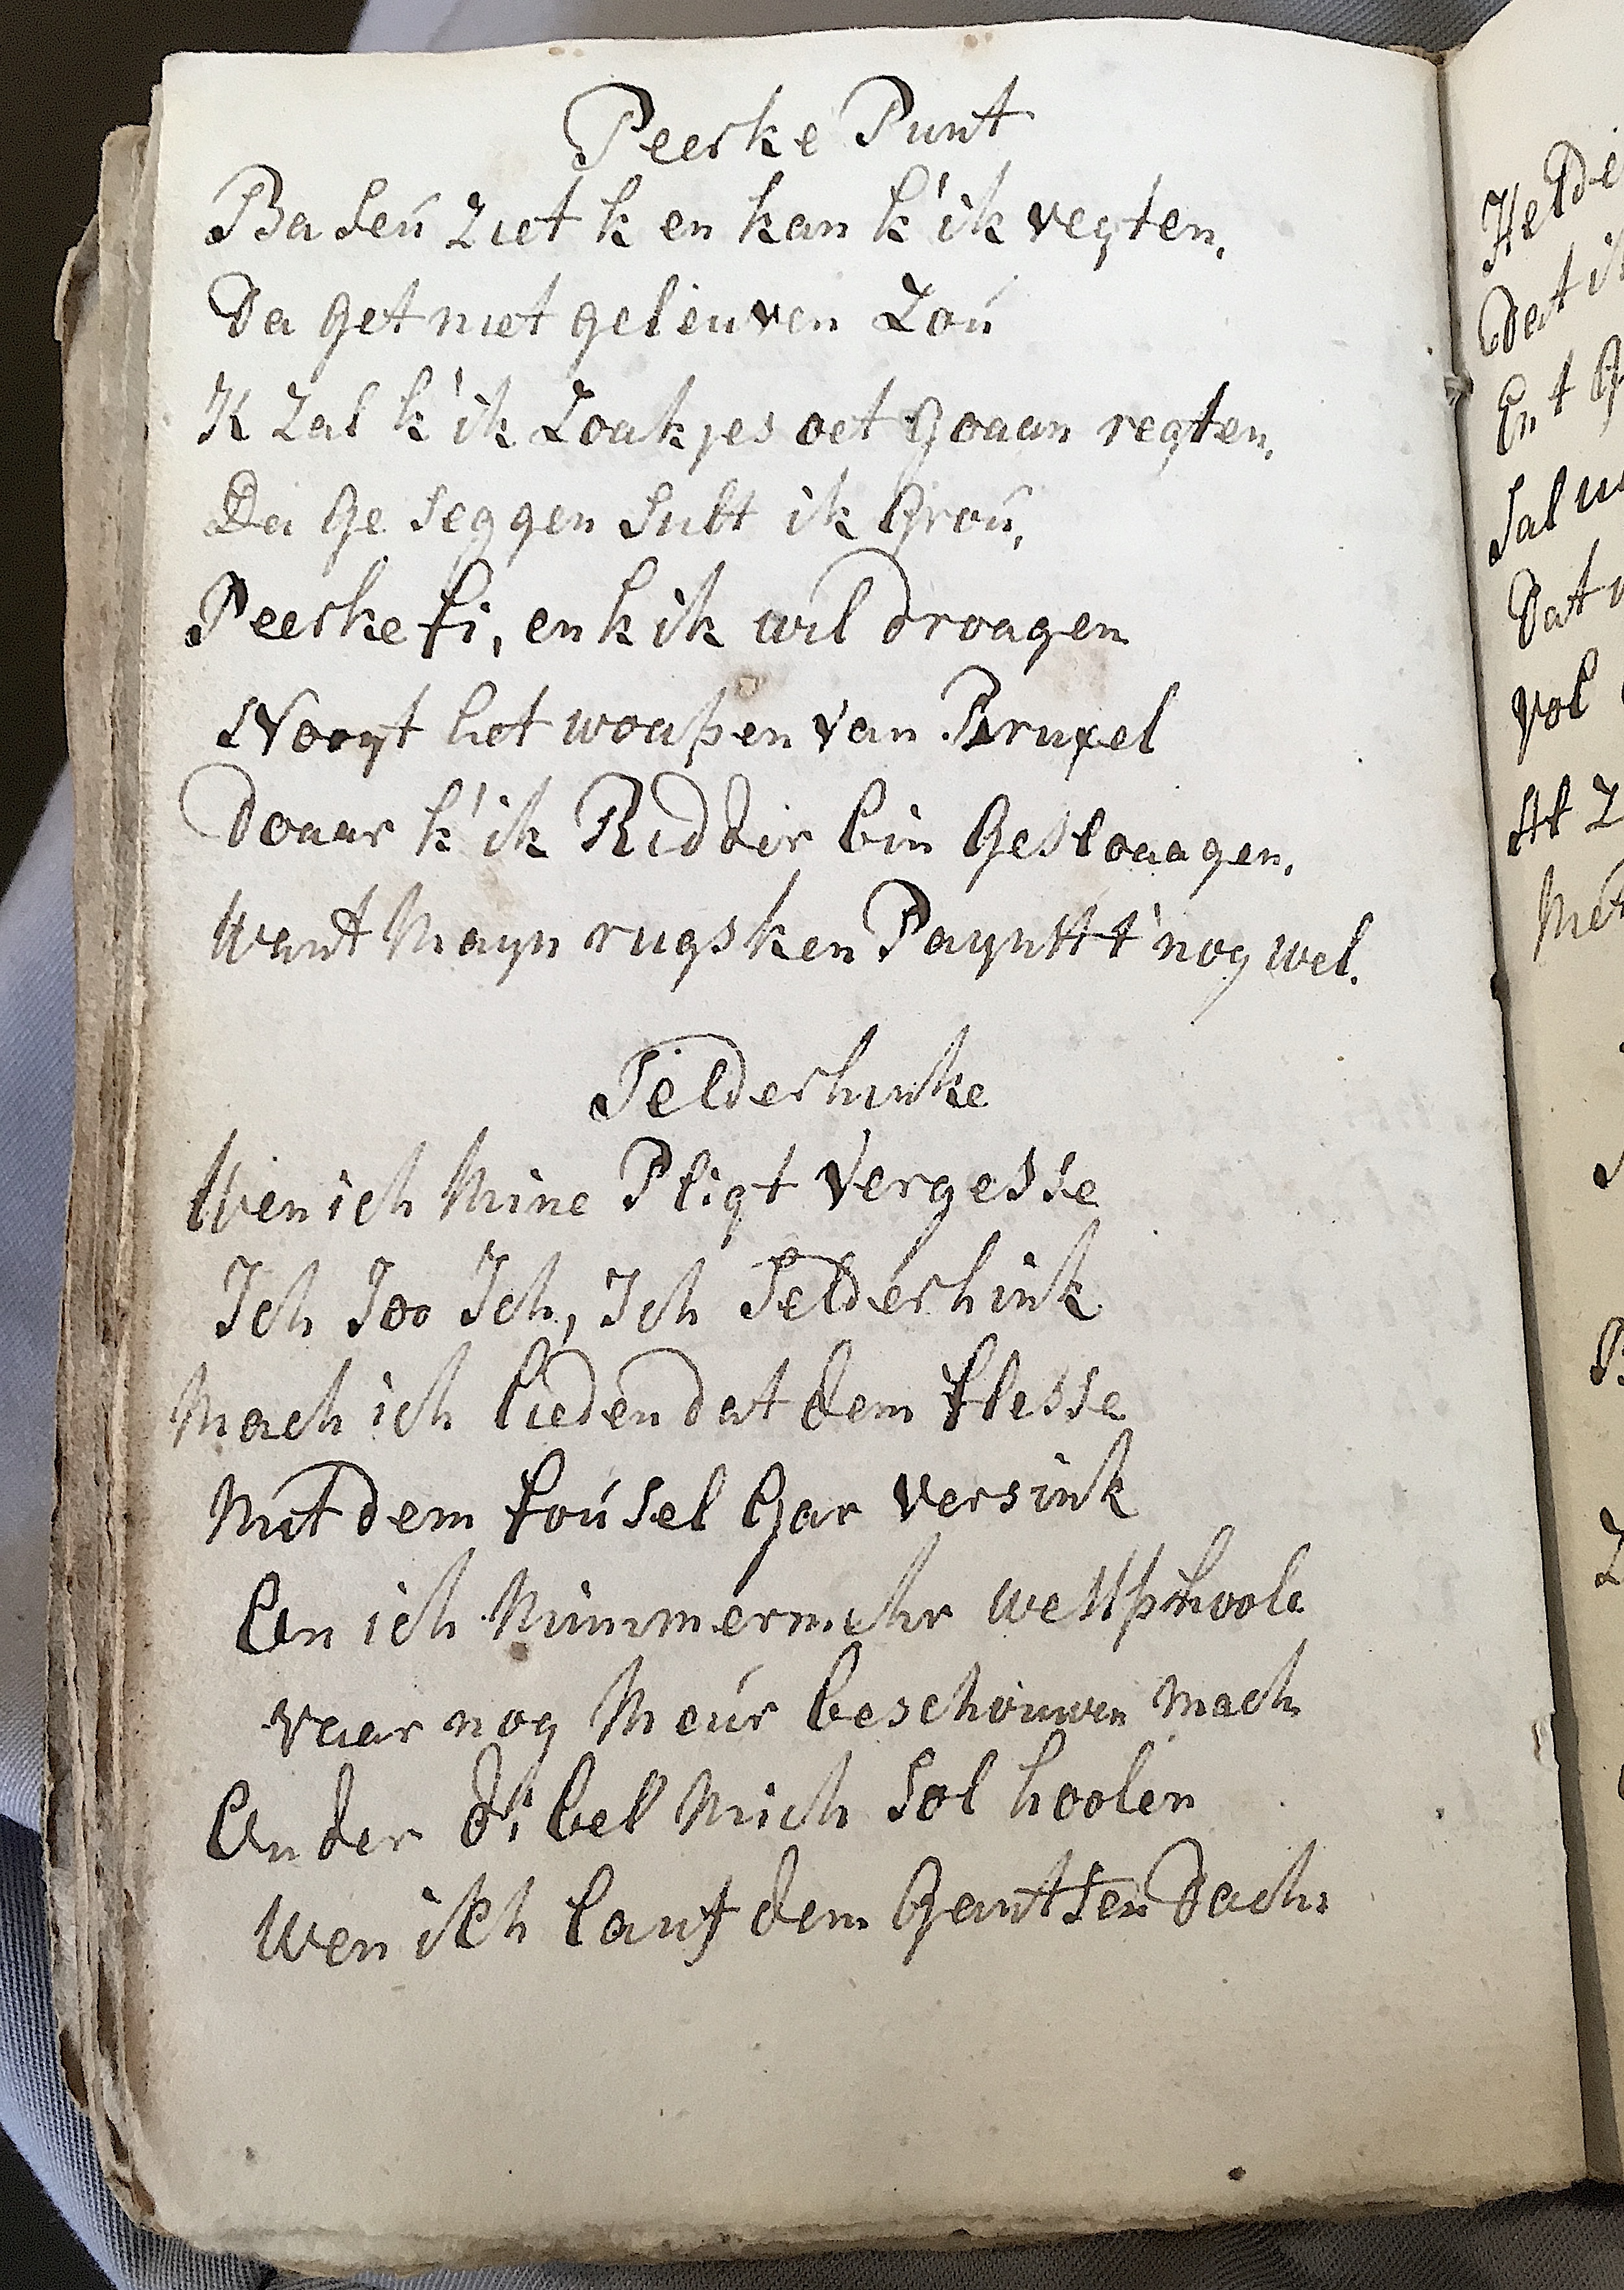 Peerke Punt
Baseú ziet k en kan k'ik vegten,
Da get niet geleuven Zoú
K Zal k'ik Zoakjes oet goaan regten,
Da ge seggen sult ik groú,
Peerke fi, en k ik wil droagen
Nooyt het woapen van Bruxel
Doaar k'ik Ridder bin gesloaagen,
Want Mayn rugsken Paynkt t'nog wel.
Selderhinke
Wen ich Mine Pligt vergesse
Ich Joo Ich, Ich Selderhink
Mach ich lieden dat dem flesse
Mit dem foúsel Gar versink
En ich Nimmermehr westphoole
vaar nog Meúr beschouwen mach
En der dibel Mich sol hoolen
Wen ich lauf dem Gantsen Dach
Helde
Dat i
En t G
Sal u
Dat
Vol
At Z
Met